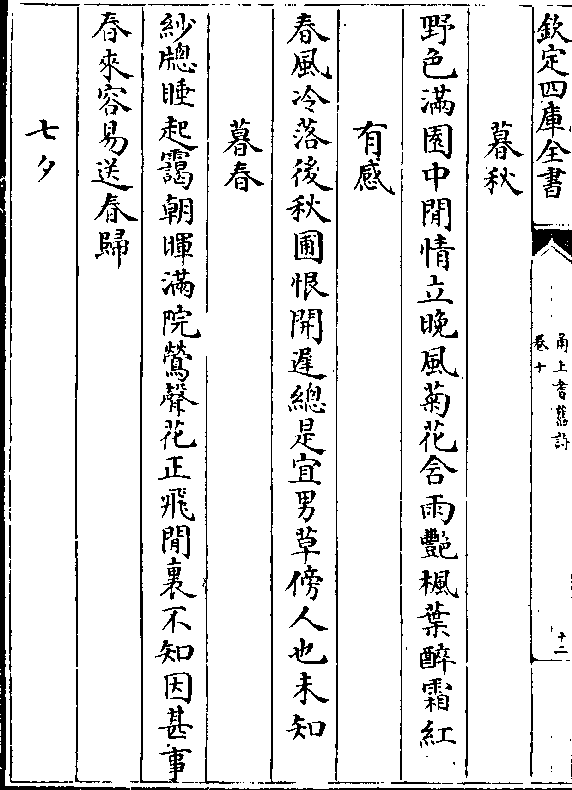 欽定四庫全書
甬上耆舊詩
卷十
十二
暮秋
野色滿園中閒情立晚風菊花含雨艷楓葉醉霜紅
有感
春風冷落後秋圃恨開遲總是宜男草傍人也未知
暮春
紗牕睡起靄朝暉滿院鶯聲花正飛閒裏不知因甚事
春來容易送春歸
七夕